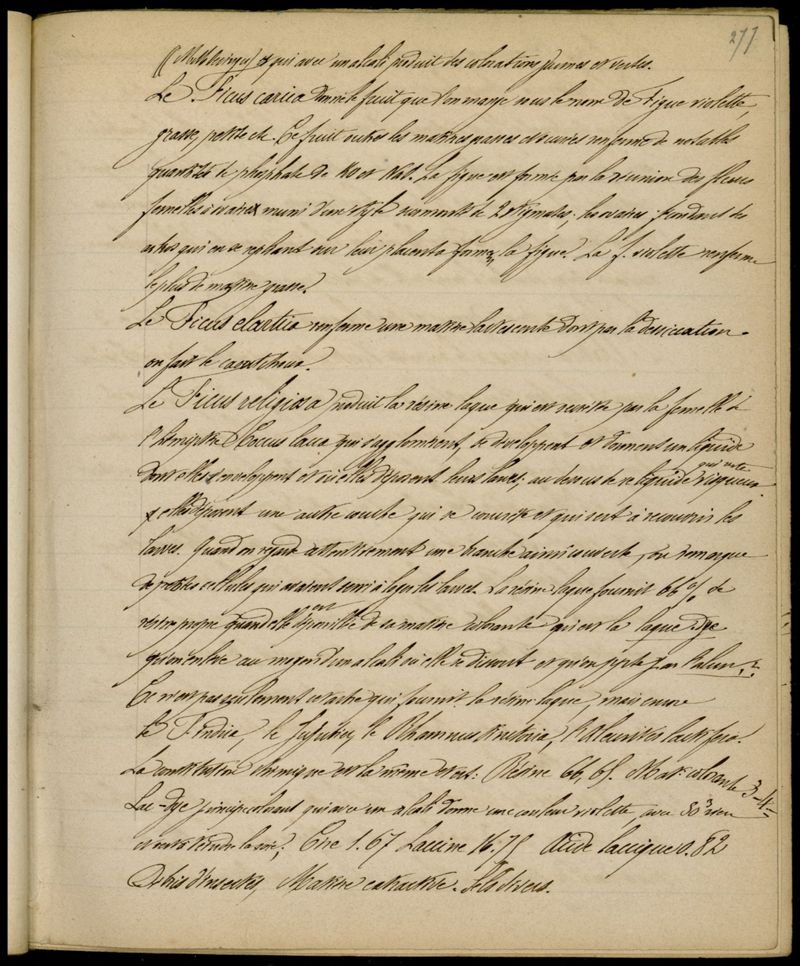 277
et qui avec un alcali produit des colorations jaunes et vertes.
Le Ficus carica donne le fruit que l'on mange sous le nom de Figue violette,
grasse, petite etc. Ce fruit outre les matières grasses et sucrées renferme de notables
quantités de phosphate de Ko et NaO. La figue est formée par la réunion des fleurs
femelles à ovaires muni d'un style surmonté de 2 stigmates; les ovaires
qui en se repliant sur leur placenta forme la figue. La f. violette renferme
le plus de matière grasse.
Le Ficus elastica renferme une matière lactescente dont par la dessiccation
on fait le caoutchouc.
Le Ficus religiosa produit la résine laque qui est sécrétée par la femelle de
l'hémiptère Coccus lacca qui s'agglomèrent, se développent et donnent un liquide
dont elles s'enveloppent et où elles déposent leurs larves; au dessus de ce liquide visqueux
elles déposent une autre couche qui se concrète et qui sert à recouvrir les
larves. Quand on regarde attentivement une branche ainsi couverte, on remarque
de petites cellules qui avaient servi à loger les larves. La résine laque fournit 66 % de
résine propre quand elle est dépouillée de sa matière colorante qui est la laque Dye
qu'on enlève au moyen d'un alcali où elle se dissout et qu'on précipite par l'alun.
Ce n'est pas seulement cet arbre qui fournit la résine laque, mais encore
le F. indica, le Jujubier, le Rhamnus, l'Aleurites laccifera.
La constitution chimique est la même et est: Résine 66,65. Mat. colorante 3-4-
Lac-Dye principe colorant qui avec un alcali donne une couleur violette, avec SO3
Cire 1.67 Laccine 16.75 Acide laccique 0.82
Débris d'insectes, Matière extractive. Sels divers.